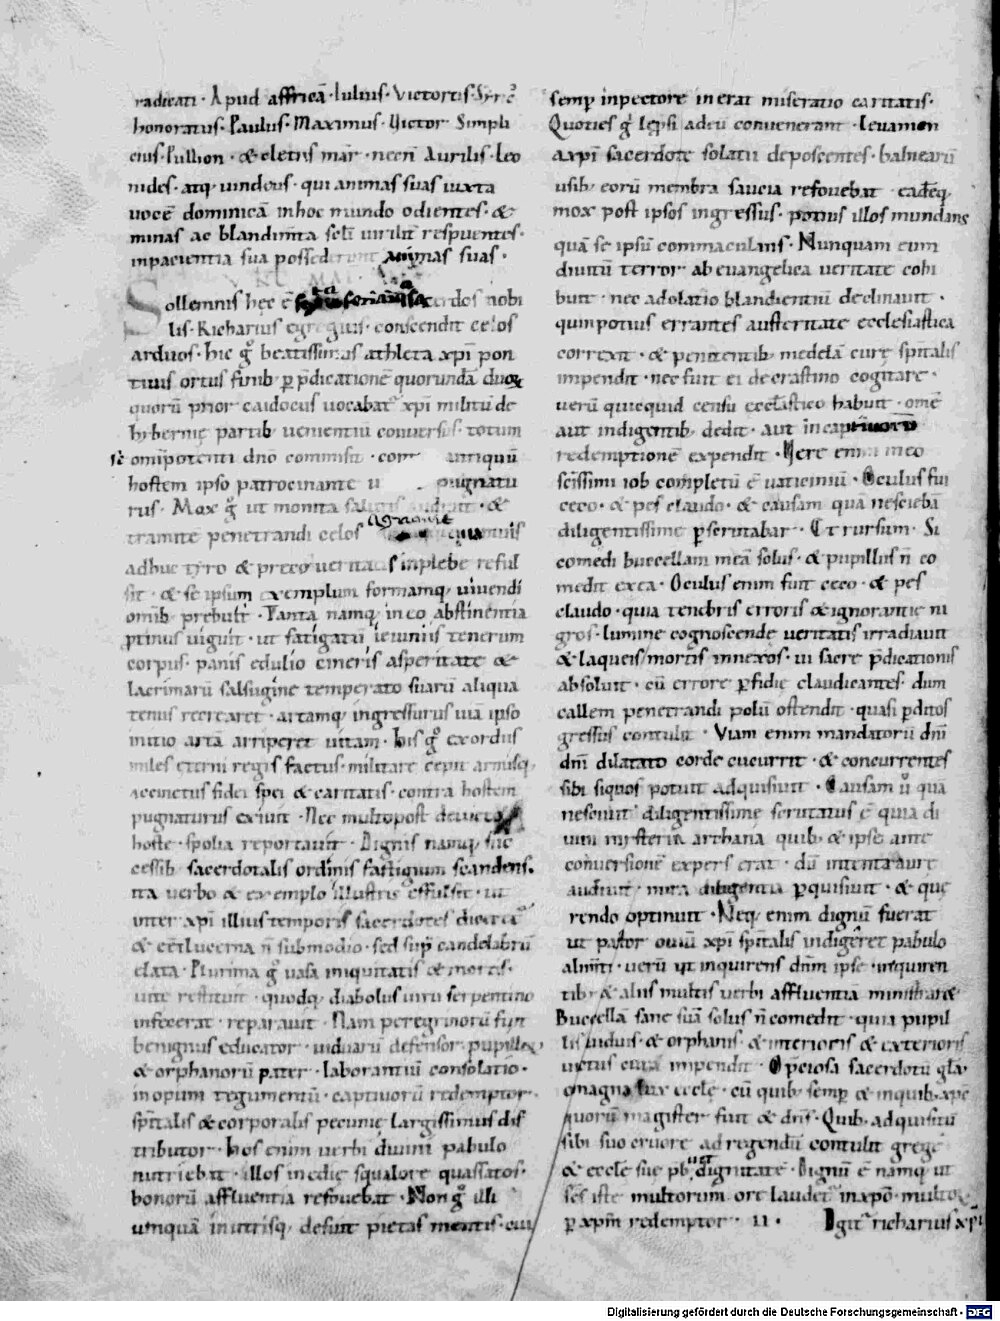 radicati · Apud affricā · Iulius · Victoris · Syrꝰ
honoratus · Paulus · Maximus · Victor Simpli
cius · Iullion · & eletus mar̄ · necn̄ Aurilis · Leo
nides · atq; uindeus · qui animas suas iuxta
uocē dominicā inhoc mundo odientes · &
minas ac blandim̄ta sc̄li uirilit̄ respuentes ·
inpacientia sua possederunt animas suas ·
Sollemnis hec ē sacerdos nobi
lis · Richarius egregius · conscendit celos
arduos · hic gͦ beatissimus athleta xp̄i pon
tiuus ortus finib; p̱ p̄dicationē quorundā duoꝝ
quorū prior caidocus uocabat̄ xp̄i militū de
hybernię partib; uenientiū conuersus · totum
sē omīpotenti dn̄o commisit · antiquū
hostem ipso patrocinante pugnatu
rus · Mox gͦ ut monita salutis audiuit · &
tramitē penetrandi celos agrauit quamuis
adhuc tyro & preco ueritatis inplebe reful
sit · & se ipsum exemplum formamq; uiuendi
omīb; prebuit · Tanta namq; in eo abstinentia
p̱tinus uiguit · ut fatigatū ieiuniis tenerum
corpus · panis edulio cineris asperitate &
lacrimarū salsugine temperato suarū aliqua
tenus recrearet · artamq; ingressurus uiā ipso
initio artā arriperet uitam · His gͦ exordiis
miles eterni regis factus · militare cepit armisq;
accinctus fidei spei & caritatis · contra hostem
pugnaturus exiuit · Nec multopost deuicto
hoste · spolia reportauit · Dignis namq; suc
cessib; sacerdotalis ordinis fastigium scandens ·
ita uerbo & exemplo illustris effulsit · ut
inter xp̄i illius temporis sacerdotes
& cet̄i lucerna n̄ submodio · sed sup̄ candelabrū
elata · Plurima gͦ uasa iniquitatis & mortis ·
uite restituit · quodq; diabolus uiru serpentino
infecerat · reparauit · Nam peregrinorū fuit
benignus educator · uiduarū defensor · pupilloꝝ
& orphanorū pater · laborantiū consolatio ·
inopum tegumentū · captiuorū redemptor ·
sp̄italis & corporalis pecunię largissimus dis
tributor · Hos enim uerbi diuini pabulo
nutriebat · illos inedię squalore quassatos ·
bonorū affluentia refouebat · Non gͦ illi
umquā inutrisq; defuit pietas mentis · cui
semp̄ inpectore inerat miseratio caritatis ·
Quoties gͦ lep̄si adeū conuenerant · leuamen
axp̄i sacerdote solatii deposcentes · balnearū
usib; eorū membra saucia refouebat eadēq;
mox post ipsos ingressus · potius illos mundans
quā se ipsū commaculans · Nunquam eum
diuitū terror ab euangelica ueritate cohi
buit · nec adolatio blandientiū declinauit ·
quinpotius errantes austeritate ecclesiastica
correxit · & penitentib; medelā curę sp̄italis
impendit · nec fuit ei decrastino cogitare ·
uerū quicquid censu eccl̄astico habuit · om̄e
aut indigentib; dedit · aut incaptiuorū
redemptionē expendit · Vere enim in eo
scissimi iob completū ē uaticiniū · Oculus fui
ceco · & pes claudo · & causam quā nesciebā
diligentissime p̱scrutabar · Et rursum · Si
comedi buccellam meā solus · & pupillus n̄ co
medit ex ea · Oculus enim fuit ceco · & pes
claudo · quia tenebris erroris & ignorantie ni
gros · lumine cognoscendę ueritatis irradiauit
& laqueis mortis innexos · ui sacre p̄dicationis
absoluit · cū errore p̱fidię claudicantes · dum
callem penetrandi polū ostendit · quasi p̱ditos
gressus contulit · Viam enim mandatorū dn̄i
dn̄i dilatato corde cucurrit · & concurrentes
sibi siquos potuit adquisiuit · Causam u̾ quā
nesciuit diligentissime scrutatus ē quia di
uini mysteria archana quib; & ipse ante
conuersionē expers erat · dū intenta aure
audiuit · mira diligentia p̱quisiuit · & quę
rendo optinuit · Neq; enim dignū fuerat
ut pastor ouiū xp̄i sp̄italis indigēret pabulo
alim̄ti · uerū ut inquirens dn̄m ipse · inquiren
tib; & aliis multis uerbi affluentiā ministraret
Buccellā sane suā solus n̄ comedit · quia pupil
lis uiduis · & orphanis · & interioris & exterioris
uictus curā impendit · O p̄ciosa sacerdotū gl̄a ·
O magna lux eccl̄ę · cū quib; semp̄ & inquib; xp̄c
quorū magister fuit & dn̄s · Quib; adquisitū
sibi suo cruore ad regendū contulit gregē
& eccl̄e suę pb̄ dignitate · Dignū ē namq; ut
sc̄s iste multorum ore laudet̄ inxp̄o · multoꝝ
p̱ xp̄m redemptor · II · Igit̄ richarius xp̄i